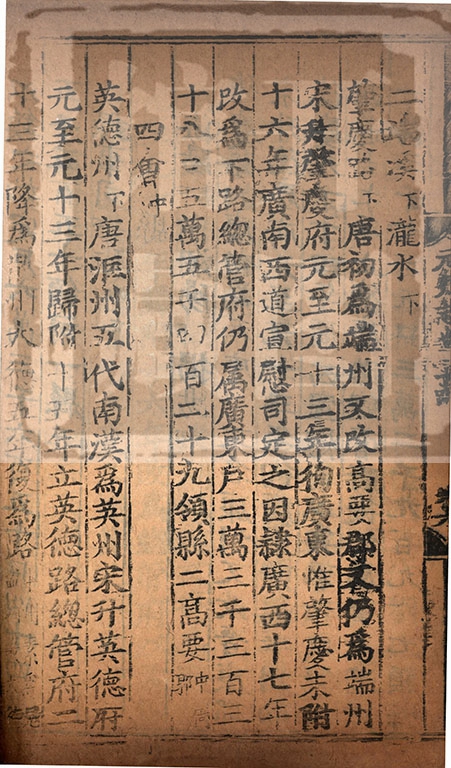 二端溪下瀧水下
肇慶路下唐初為端州又改高要郡又仍為端州
宋升肇慶府元至元十三年徇廣東惟肇慶未附
十六年廣南西道宣慰司定之因隸廣西十七年
改為下路總管府仍属廣東戶三萬三千三百三
十八口五萬五千四百二十九領縣二高要中
四會中
英德州下唐洭州五代南漢為英州宋升英德府
元至元十三年歸附十五年立英德路總管府二
十三年降為州大德五年復為路